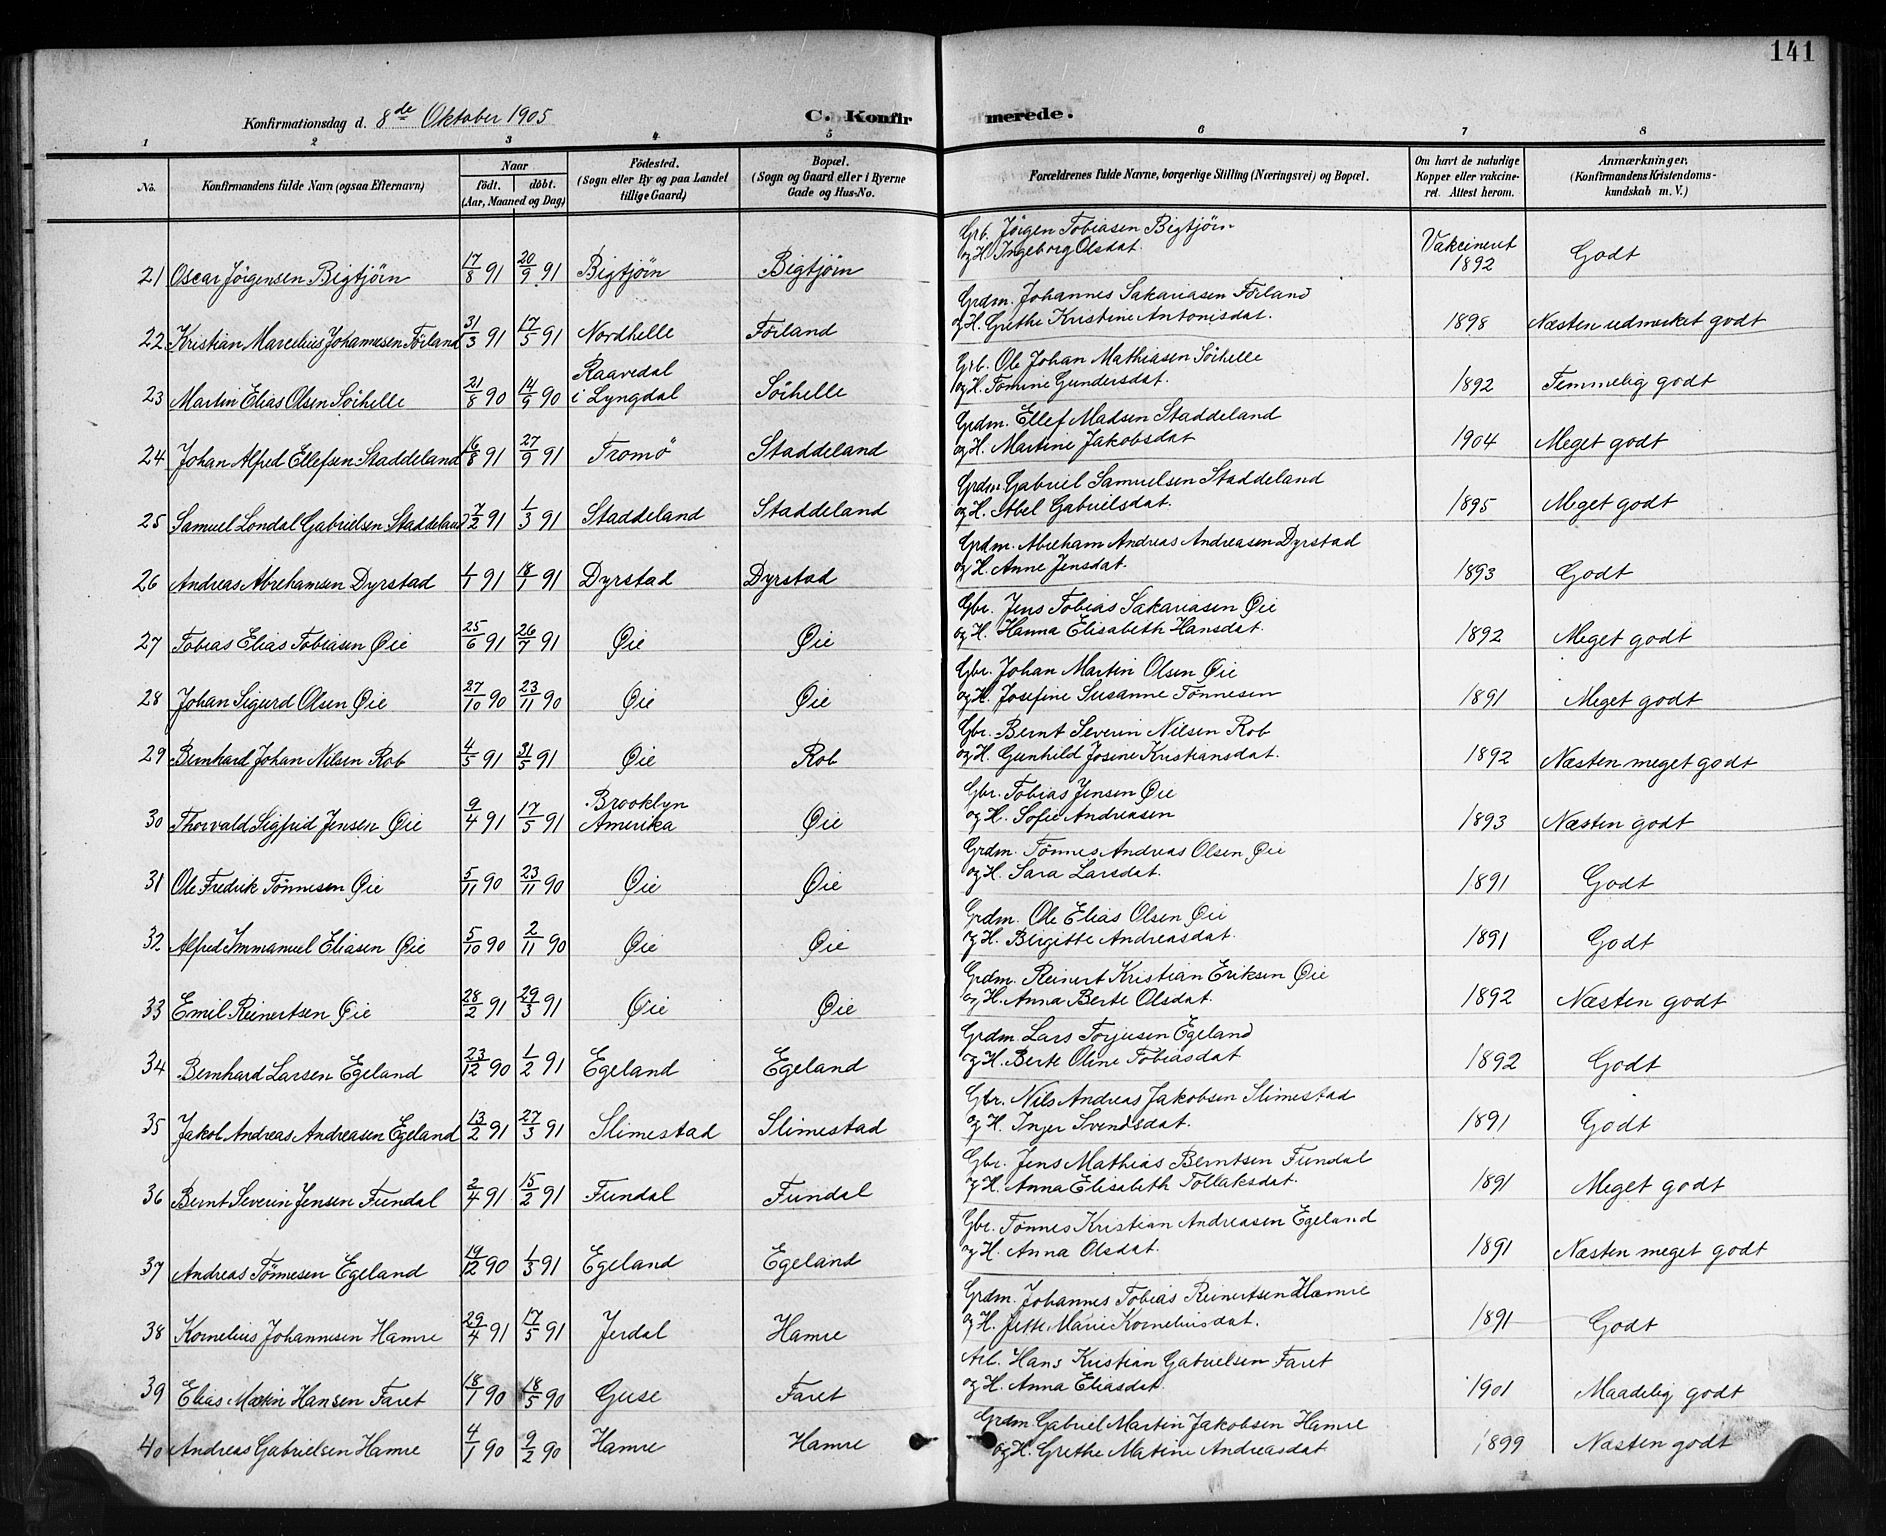 141
Konfirmationsdag d. 8de Oktober 1905
C. Konfirmerede.
1 2 3 4 5 6 7 8
No. Konfirmandens fulde Navn (ogsaa Efternavn) Naar født. døbt. (Aar, Maaned og Dag) Fødested. (Sogn eller By og paa Landet tillige Gaard) Bopæl. (Sogn og Gaard eller i Byerne Gade og Hus-No. Forældrenes fulde Navne, borgerlige Stilling (Næringsvei) og Bopæl. Om havt de naturlige Kopper eller vakcineret. Attest herom. Anmærkninger. (Konfirmandens Kristendomskundskab m. V.)
Grb. Jörgen Tobiasen Bigtjörn
21 Oscar Jörgensen Bigtjörn 17/8 91 20/9 91 Bigtjörn Bigtjörn og H. Ingeborg Olsdat. Vakcineret 1892 Godt
Grdm. Johannes Sakariasen Förland
22 Kristian Marcelius Johannesen Förland 31/3 91 17/5 91 Nordhelle Förland og H. Grethe Kristine Antonisdat. 1898 Næsten udmerket godt
Grb. Ole Johan Mathiasen Söihelle
23 Martin Elias Olsen Söihelle 21/8 90 14/9 90 Raavedal i Lyngdal Söihelle og H. Tomine Gundersdat. 1892 Temmelig godt
Grdm. Ellef Madsen Staddeland
24 Johan Alfred Ellefsen Staddeland 16/8 91 27/9 91 Tromö Staddeland og H. Martine Jakobsdat 1904 Meget godt
Grdm. Gabriel Samuelsen Staddeland
25 Samuel Londal Gabrielsen Staddeland 7/2 91 1/3 91 Staddeland Staddeland og H. Abel Gabrielsdat. 1895 Meget godt
Grdm. Abreham Andreas Andreasen Dyrstad
26 Andreas Abrehamsen Dyrstad 1/1 91 18/1 91 Dyrstad Dyrstad og H. Anne Jensdat. 1893 Godt
Gbr. Jens Tobias Sakariasen Øie
27 Tobias Elias Tobiasen Øie 25/6 91 26/7 91 Øie Øie og H. Hanna Elisabeth Hansdat. 1892 Meget godt
Gbr. Johan Martin Olsen Øie
28 Johan Sigurd Olsen Øie 27/10 90 23/11 90 Øie Øie og H. Josefine Susanne Tönnesen 1891 Meget godt
Gbr. Bernt Severin Nilsen Rob
29 Bernhard Johan Nilsen Rob 4/5 91 31/5 91 Øie Rob og H. Gunhild Josine Kristiansdat. 1892 Næsten meget godt
Gbr. Tobias Jensen Øie
30 Thorvald Sigfrid Jensen Øie 9/4 91 17/5 91 Brooklyn Amerika Øie og H. Sofie Andreasen 1893 Næsten godt
Grdm. Tönnes Andreas Olsen Øie
31 Ole Fredrik Tönnesen Øie 5/11 90 23/11 90 Øie Øie og H. Sara Larsdat. 1891 Godt
Grdm. Ole Elias Olsen Øie
32 Alfred Immanuel Eliasen Øie 5/10 90 2/11 90 Øie Øie og H. Birgitte Andreasdat. 1891 Godt
Grdm. Reinert Kristian Eriksen Øie
33 Emil Reinertsen Øie 28/2 91 29/3 91 Øie Øie og H. Anna Berte Olsdat. 1892 Næsten godt
Grdm. Lars Torjusen Egeland
34 Bernhard Larsen Egeland 23/12 90 1/2 91 Egeland Egeland og H. Berte Oline Tobiasdat 1892 Godt
Gbr. Nils Andreas Jakobsen Slimestad
35 Jakob Andreas Andreasen Egeland 13/2 91 27/3 91 Slimestad Slimestad og H. Inger Svendsdat. 1891 Godt
Gbr. Jens Mathias Berntsen Fundal
36 Bernt Severin Jensen Fundal 2/4 91 15/2 91 Fundal Fundal og H. Anna Elisabeth Tollaksdat. 1891 Meget godt
Gbr. Tönnes Kristian Andreasen Egeland
37 Andreas Tönnesen Egeland 19/12 90 1/3 91 Egeland Egeland og H. Anna Olsdat. 1891 Næsten meget godt
Grdm. Johannes Tobias Reinertsen Hamre
38 Kornelius Johannesen Hamre 29/4 91 17/5 91 Jerdal Hamre og H. Jette Marie Korneliusdat. 1891 Godt
Arb. Hans Kristian Gabrielsen Faret
39 Elias Martin Hansen Faret 18/1 90 18/5 90 Guse Faret og H. Anna Eliasdat. 1901 Maadelig godt
Grdm. Gabriel Martin Jakobsen Hamre
40 Andreas Gabrielsen Hamre 4/1 90 9/2 90 Hamre Hamre og H. Grethe Matine Andreasdat 1899 Næsten godt